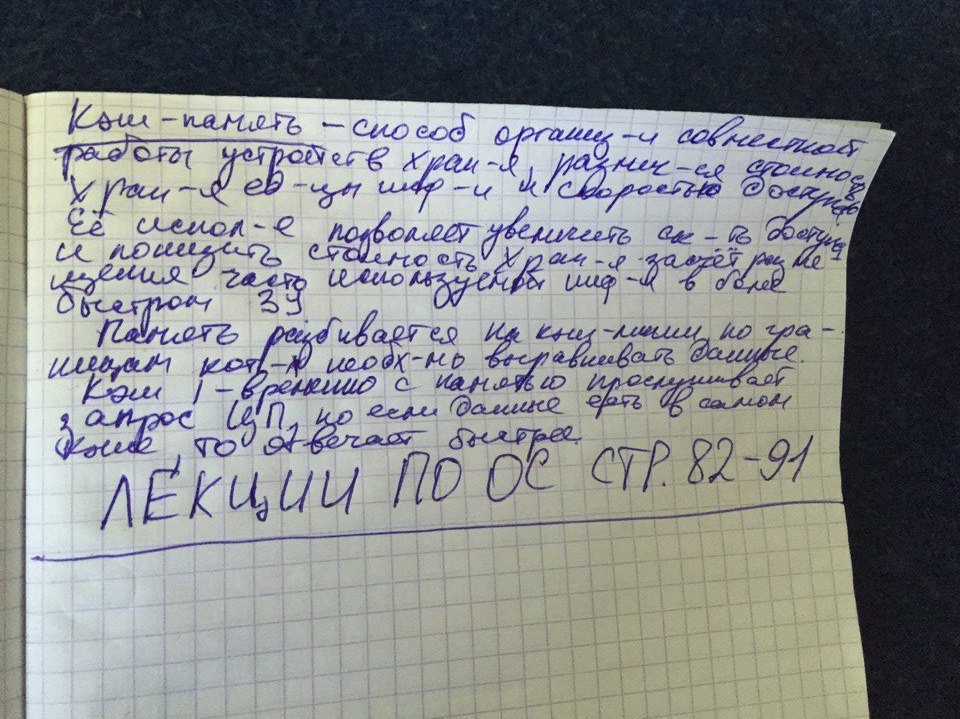 Кэш-память – способ организ-и совместной
работы устройств хран-я, различ-ся стоимос
хран-я ед-цы инф-и и скоростью доступа
Её испол-е позволяет увеличить ск-ть доступа
и понизить стоимость хран-я засчёт разме
щения часто используемой инф-и в более
быстром ЗУ
Память разбивается на кэш-линии, по гра-
ницам кот-х необх-мо выравнивать данные.
Кэш 1-временно с памятью прослушивает
запрос ЦП, но если данные есть в самом
кэше, то отвечает быстрее.
ЛЕКЦИИ ПО ОС СТР. 82-91